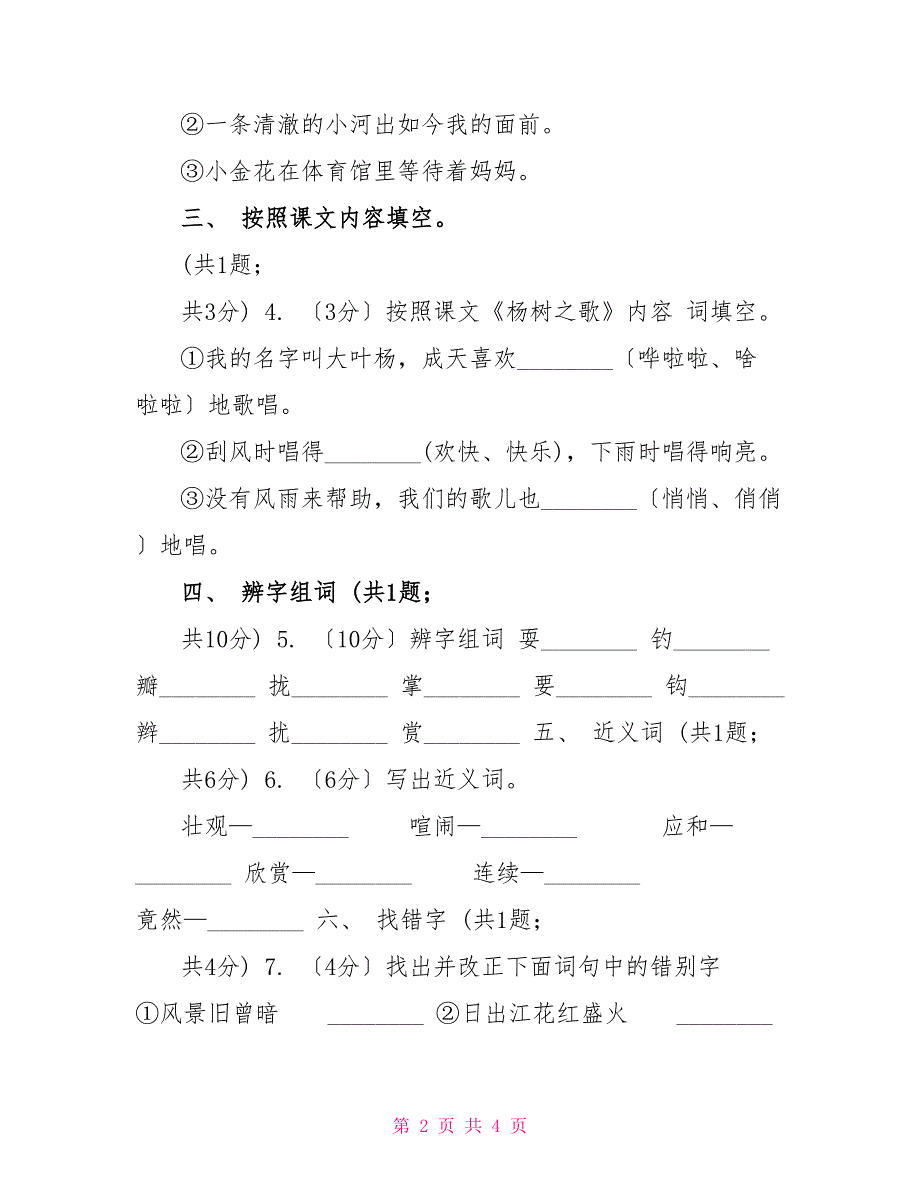 ②一条清澈的小河出如今我的面前。
③小金花在体育馆里等待着妈妈。
三、 按照课文内容填空。
(共1题；
共3分) 4. 〔3分〕按照课文《杨树之歌》内容 词填空。
①我的名字叫大叶杨，成天喜欢________〔哗啦啦、啥
啦啦〕地歌唱。
②刮风时唱得________(欢快、快乐)，下雨时唱得响亮。
③没有风雨来帮助，我们的歌儿也________〔悄悄、俏俏
〕地唱。
四、 辨字组词 (共1题；
共10分) 5. 〔10分〕辨字组词 耍________ 钓________
瓣________ 拢________ 掌________ 要________ 钩________
辫________ 扰________ 赏________ 五、 近义词 (共1题；
共6分) 6. 〔6分〕写出近义词。
壮观—________ 喧闹—________ 应和—
________ 欣赏—________ 连续—________
竟然—________ 六、 找错字 (共1题；
共4分) 7. 〔4分〕找出并改正下面词句中的错别字
①风景旧曾暗 ________ ②日出江花红盛火 ________
第 2 页 共 4 页